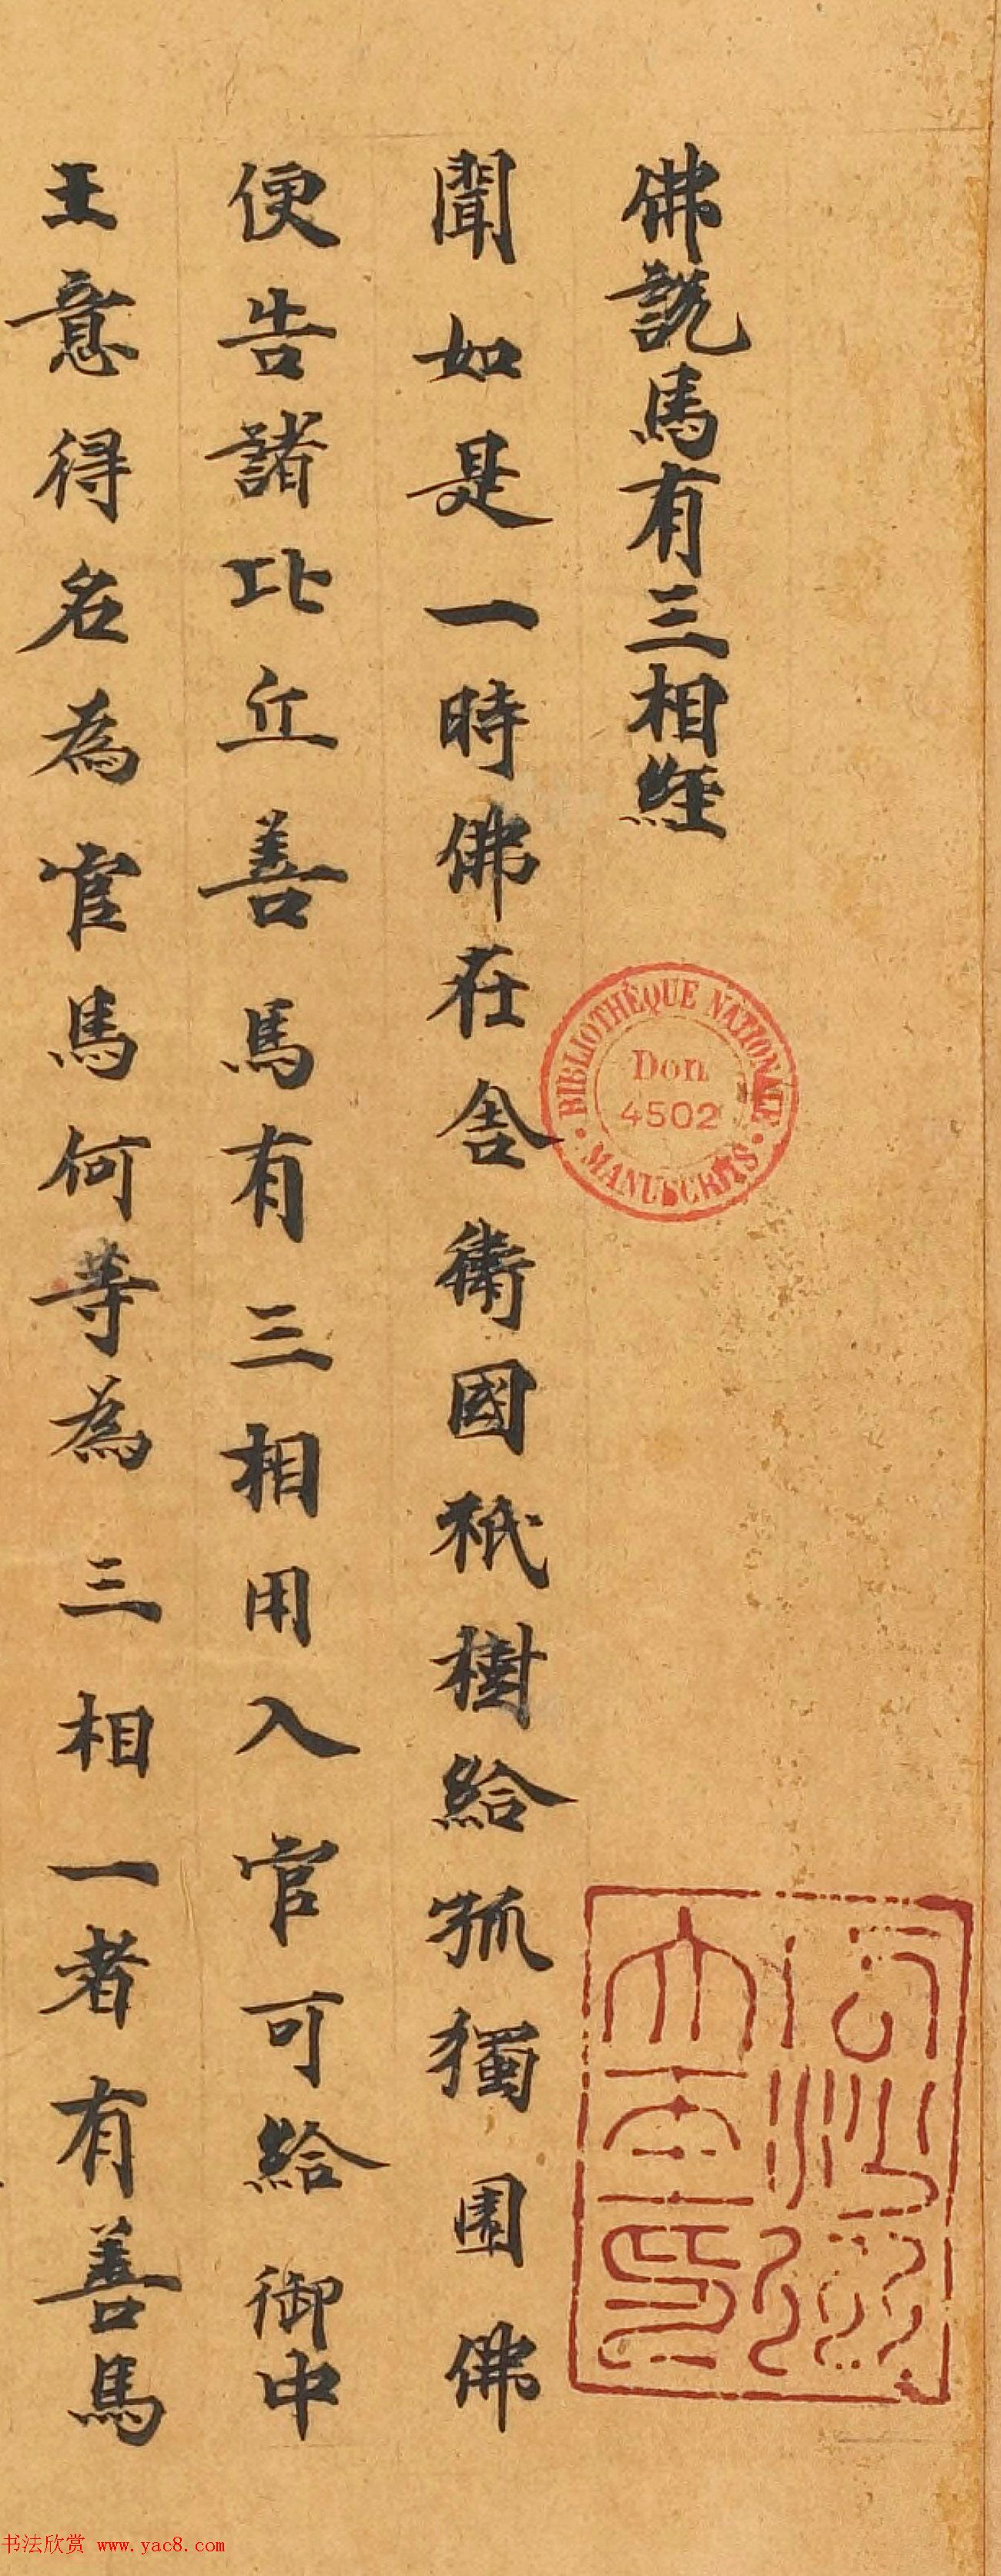 佛說馬有三相經
聞如是一時佛在舍衛國祇樹給孤獨園佛
便告諸比丘善馬有三相用入官可給御中
王意得名為官馬何等為三相一者有善馬
BIBLIOTHÈQUE NATIONALE
Don
4502
MANUSCRITS
书法欣赏 www.yac8.com